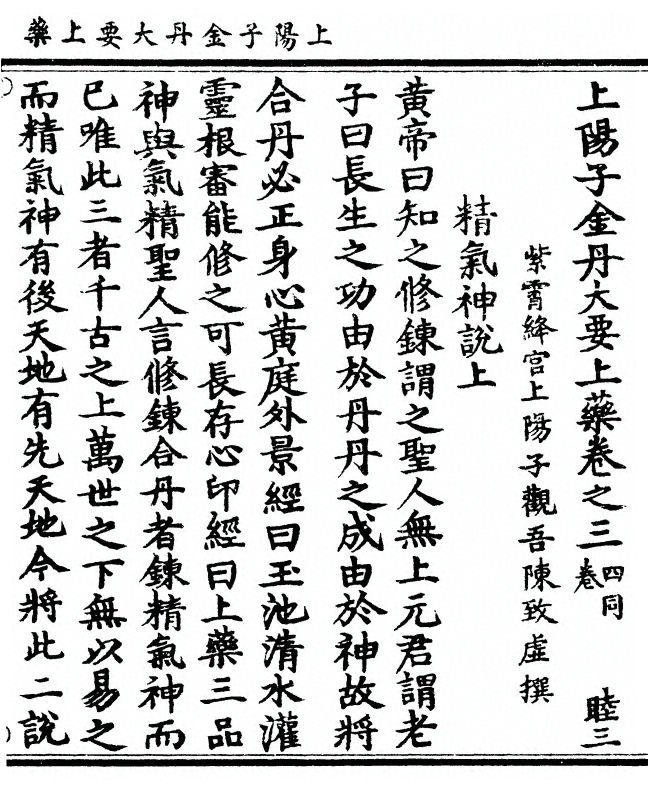 上陽子金丹大要上藥
上陽子金丹大要上藥卷之三 四同卷 睦三
紫霄絳宮上陽子觀吾陳致虛撰
精氣神說上
黃帝曰知之修鍊謂之聖人無上元君謂老
子曰長生之功由於丹丹之成由於神故將
合丹必正身心黃庭外景經曰玉池清水灌
靈根審能修之可長存心印經曰上藥三品
神與氣精聖人言修鍊合丹者鍊精氣神而
已唯此三者千古之上萬世之下無以易之
而精氣神有後天地有先天地今將此二說